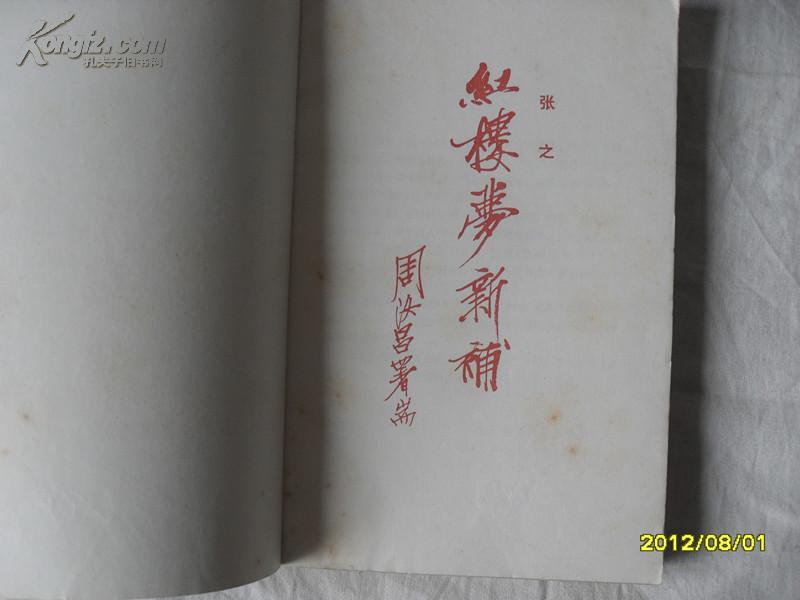 Kongfz.com
孔夫子旧书网
张之
紅樓夢新補
周汝昌署耑
2012/08/01